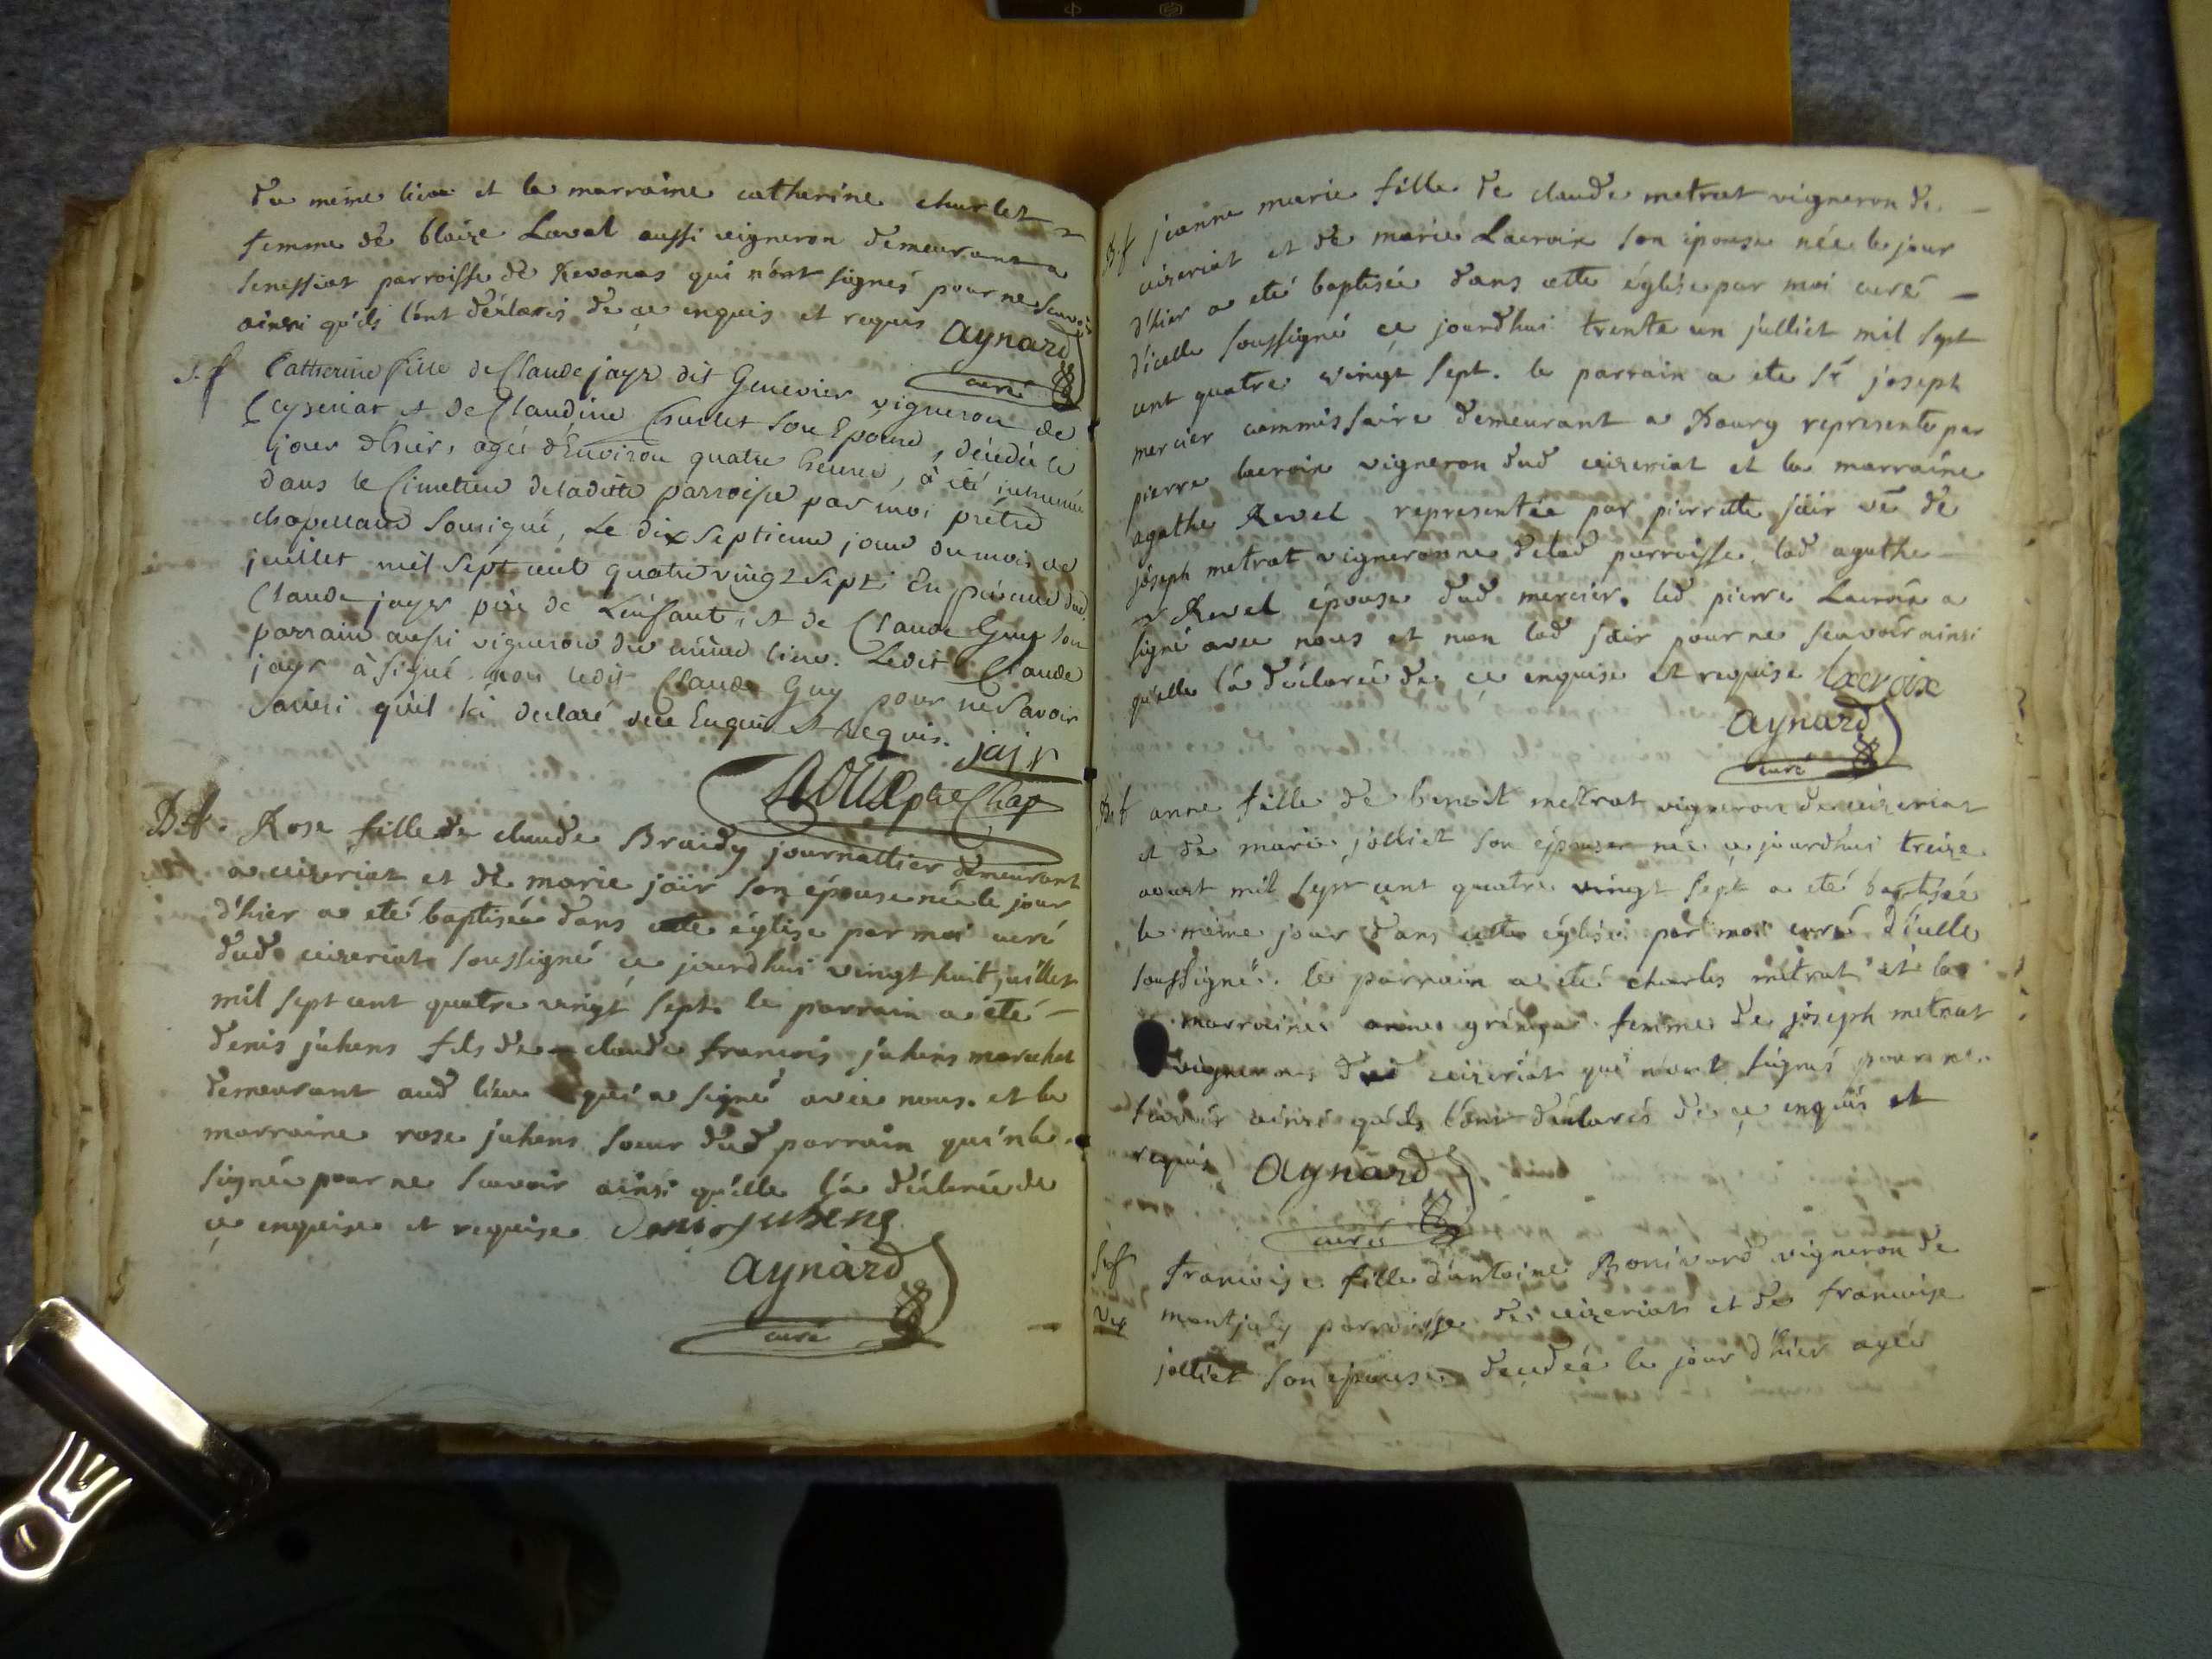 du meme lieu et la marraine catherine charlet
femme de blaize Laval aussi vigneron demeurant a
senissiat parroisse de Revonas qui n'ont signés pour ne scavoir
ainsi qu'ils l'ont déclarés de ce enquis et requis Aynard
curé
S. f Catherine fille de Claude jayr dit Genevier vigneron de
Ceyseriat et de Claudine Charlet son Epouse, décédée le
jour d'hier, agée d'Environ quatre heures, à été inhumée
dans le Cimetiere de laditte parroisse par moi prêtre
chapellain sousigné, Le dix septieme jour du mois de
juillet mil sept cent quatre vingt sept; En présence dud
Claude jayr père de L'enfant, et de Claude Guy son
parrain aussi vigneron du même lieu. Ledit Claude
jayr à signé non ledit Claude Guy pour ne Savoir
ainsi qu'il l'a declaré de ce Enquis et Requis. jair
ptre Chap
B. f. Rose fille de claude Braidy journallier demeurant
a ceizeriat et de marie jair son épouse née le jour
d'hier a eté baptisée dans cette église par moi curé
dud ceizeriat soussigné ce jourdhui vingt huit juillet
mil sept cent quatre vingt sept. le parrain a été —
denis juhens fils de claude francois juhens marechal
demeurant aud lieu qui a signé avec nous. et la
marraine rose juhens soeur dud parrain qui n'a
signée pour ne scavoir ainsi qu'elle l'a déclarée de
ce enquise et requise Denis juhens
Aynard
curé
B. f jeanne marie fille de claude metrat vigneron de —
ceizeriat et de marie Lacroix son épouse née le jour
d'hier a eté baptisée dans cette église par moi curé —
d'icelle soussigné ce jourdhui trente un julliet mil sept
cent quatre vingt sept. le parrain a ete Sr joseph
mercier commissaire demeurant a Bourg represente par
pierre lacroix vigneron dud ceizeriat et la marraine
agathe Revel representée par pierrette jair ve de
joseph metrat vigneronne de lad parroisse lad agathe —
Revel épouse dud mercier. led pierre Lacroix a
signé avec nous et non lad jair pour ne scavoir ainsi
qu'elle l'a déclarée de ce enquise et requise Lacroix
Aynard
curé
B. f anne fille de benoit metrat vigneron de ceizeriat
et de marie jolliet son épouse née ce jourdhui treize
aoust mil sept cent quatre vingt sept a eté baptisée
le même jour dans cette église par moi curé d'icelle
soussigné. le parrain a eté charles metrat et la
marraine anne femme de joseph metrat
vigneron dud ceizeriat qui n'ont signés pour ne
scavoir ainsi qu'ils l'ont déclarés de ce enquis et
requis Aynard
curé
S. f francoise fille d'antoine Bonivard vigneron de
montjuly parroisse de ceizeriat et de francoise
jolliet son épouse decedée le jour d'hier agée